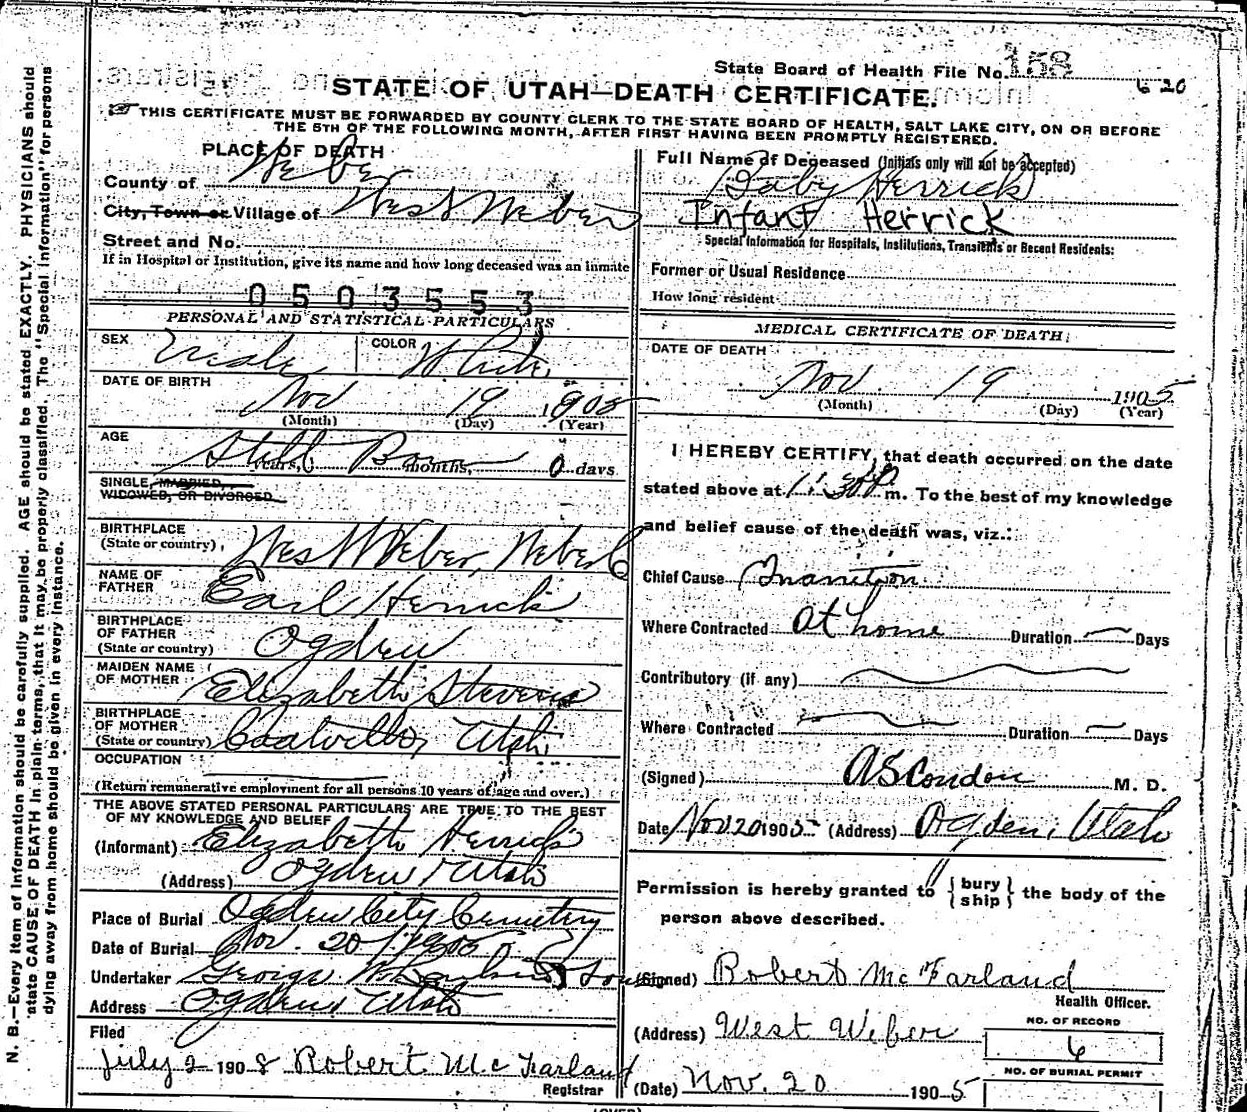 State Board of Health File No. 158
6 20
STATE OF UTAH—DEATH CERTIFICATE.
THIS CERTIFICATE MUST BE FORWARDED BY COUNTY CLERK TO THE STATE BOARD OF HEALTH, SALT LAKE CITY, ON OR BEFORE
THE 5TH OF THE FOLLOWING MONTH, AFTER FIRST HAVING BEEN PROMPTLY REGISTERED.
N. B.—Every item of information should be carefully supplied. AGE should be stated EXACTLY. PHYSICIANS should
state CAUSE OF DEATH in plain terms, that it may be properly classified. The "Special Information" for persons
dying away from home should be given in every instance.
PLACE OF DEATH
County of Weber
City, Town or Village of West Weber
Street and No.
If in Hospital or Institution, give its name and how long deceased was an inmate
0503553
PERSONAL AND STATISTICAL PARTICULARS
SEX Male COLOR White
DATE OF BIRTH
Nov 19 1905
(Month) (Day) (Year)
AGE
Still Born years, months, 0 days
SINGLE, MARRIED,
WIDOWED, OR DIVORCED
BIRTHPLACE
(State or country) West Weber, Weber Co
NAME OF
FATHER Earl Herrick
BIRTHPLACE
OF FATHER
(State or country) Ogden
MAIDEN NAME
OF MOTHER Elizabeth Stevens
BIRTHPLACE
OF MOTHER
(State or country) Coalville, Utah
OCCUPATION
(Return remunerative employment for all persons 10 years of age and over.)
THE ABOVE STATED PERSONAL PARTICULARS ARE TRUE TO THE BEST
OF MY KNOWLEDGE AND BELIEF
(Informant) Elizabeth Herrick
(Address) Ogden Utah
Place of Burial Ogden City Cemetery
Date of Burial Nov. 20 1905
Undertaker George W. Sons
Address Ogden Utah
Filed
July 2 1908 Robert McFarland
Registrar
Full Name of Deceased (Initials only will not be accepted)
Baby Herrick
Infant Herrick
Special Information for Hospitals, Institutions, Transients or Recent Residents:
Former or Usual Residence
How long resident
MEDICAL CERTIFICATE OF DEATH
DATE OF DEATH
Nov 19 1905
(Month) (Day) (Year)
I HEREBY CERTIFY, that death occurred on the date
stated above at 11:30 P m. To the best of my knowledge
and belief cause of the death was, viz.:
Chief Cause Inanition
Where Contracted at home Duration — Days
Contributory (if any)
Where Contracted Duration — Days
(Signed) A S Condon M. D.
Date Nov 20 1905 (Address) Ogden, Utah
Permission is hereby granted to { bury
ship } the body of the
person above described.
(Signed) Robert McFarland
Health Officer.
(Address) West Weber
NO. OF RECORD
6
NO. OF BURIAL PERMIT
(Date) Nov. 20 1905
(OVER)